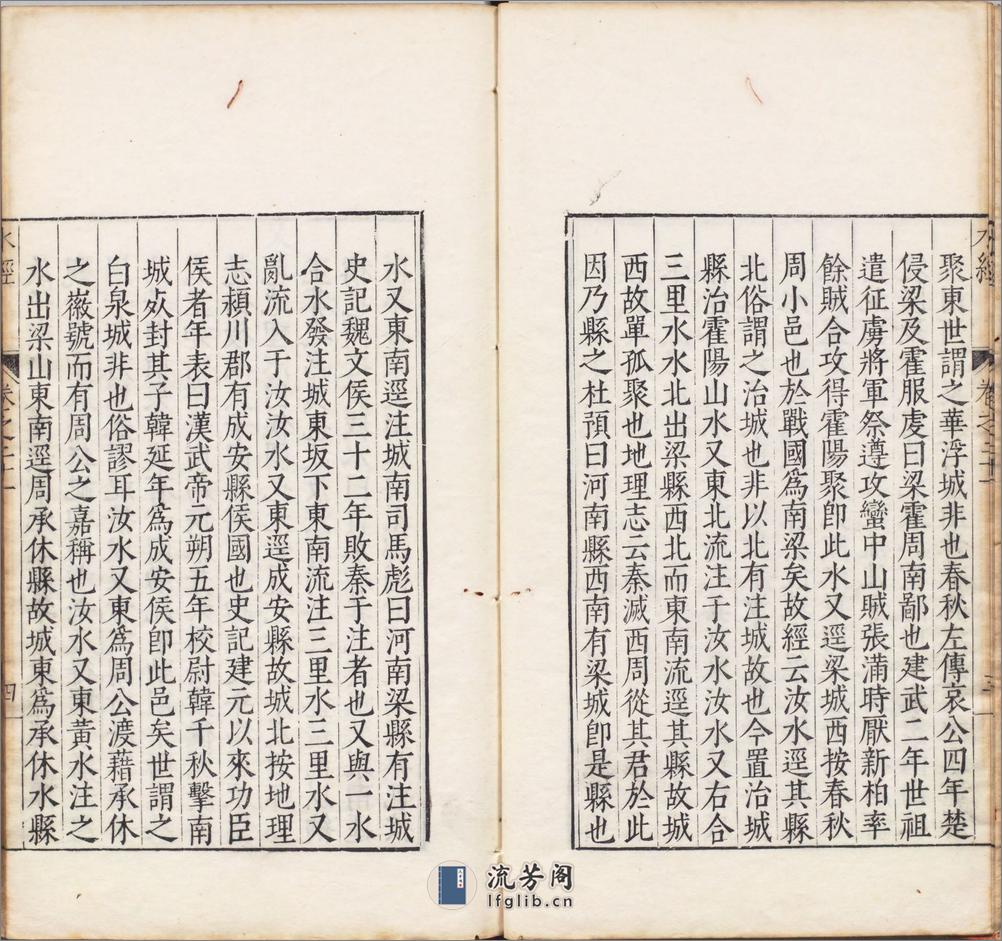 聚東世謂之華浮城非也春秋左傳哀公四年楚
侵梁及霍服虔曰梁霍周南鄙也建武二年世祖
遣征虜將軍祭遵攻蠻中山賊張滿時厭新柏率
餘賊合攻得霍陽聚卽此水又逕梁城西按春秋
周小邑也於戰國爲南梁矣故經云汝水逕其縣
北俗謂之治城也非以北有注城故也今置治城
縣治霍陽山水又東北流注于汝水汝水又右合
三里水水北出梁縣西北而東南流逕其縣故城
西故單孤聚也地理志云秦滅西周從其君於此
因乃縣之杜預曰河南縣西南有梁城卽是縣也
水又東南逕注城南司馬彪曰河南梁縣有注城
史記魏文侯三十二年敗秦于注者也又與一水
合水發注城東坂下東南流注三里水三里水又
亂流入于汝汝水又東逕成安縣故城北按地理
志潁川郡有成安縣侯國也史記建元以來功臣
侯者年表曰漢武帝元朔五年校尉韓千秋擊南
城死封其子韓延年爲成安侯卽此邑矣世謂之
白泉城非也俗謬耳汝水又東爲周公渡藉承休
之徽號而有周公之嘉稱也汝水又東黃水注之
水出梁山東南逕周承休縣故城東爲承休水縣
水經
卷之二十一
四
流芳阁
lfglib.cn